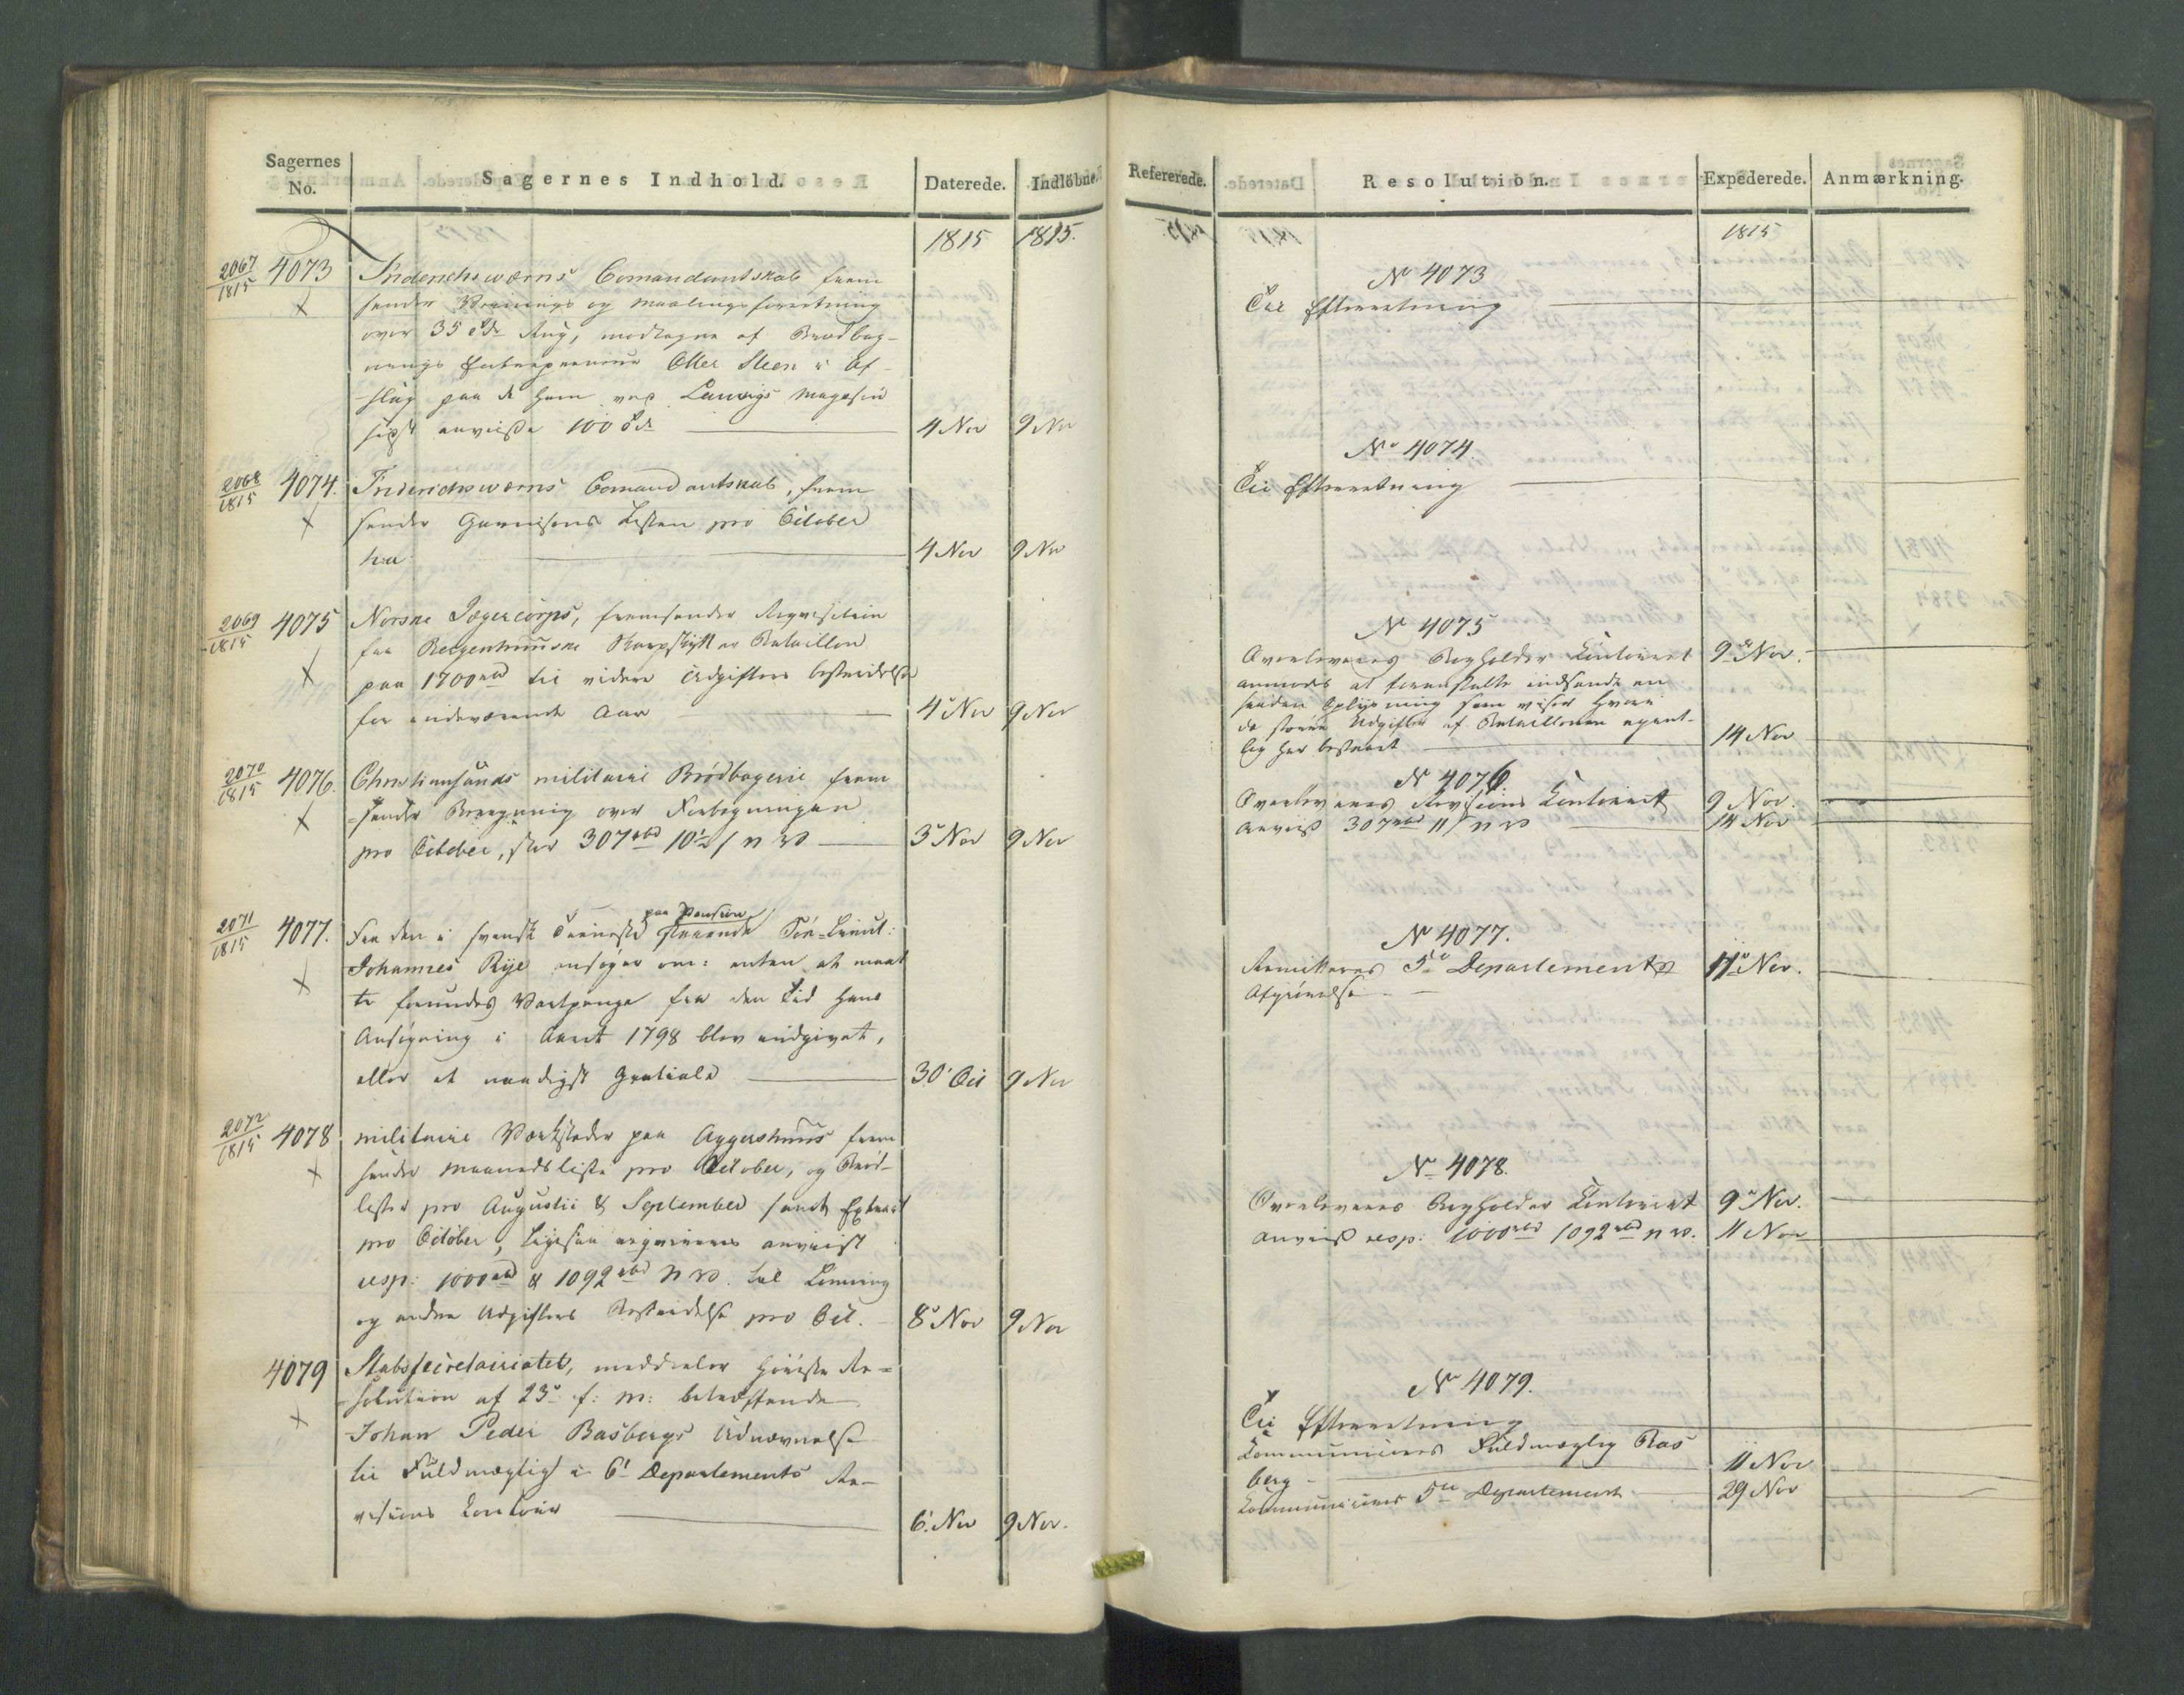 Sagernes No.
Sagernes Indhold.
Daterede.
Indlöbne.
1815 1815.
2067/1815 4073 Friderichsværns Comandantskab frem
sender Veinings og Maalingsforretning
over 35 Tdr Rug, modtagne af Brødbag-
nings Entrepreneur Oller Steen i Af-
slag paa de ham ved Laurvigs Magasin
sidst anviiste 100 Tdr 4 Nov 9 Nov
2068/1815 4074. Friderichsværns Comandantskab, frem
sender Garnisons Listen pro October
h:a: 4 Nov 9 Nov
2069/1815 4075 Norske Jægercorps, fremsender Reqvisition
fra Bergenhuusske Skarpskytter Bataillon
paa 1700 rbd til videre Udgifters bestridelse
for indeværende Aar 4 Nov 9 Nov
2070/1815 4076. Christiansands militaire Brødbagerie frem
sender Beregning over Forbagningen
pro October, stor 307 rbd 10½ s n v 3 Nov 9 Nov
2071/1815 4077. Fra den i svensk Tieneste paa Pension staaende Sec-Lieut:
Johannes Rye ansøger om: enten at maat
te forundes Vartpenge fra den Tid hans
Ansøgning i Aaret 1798 blev indgivet,
eller et naadigst Gratiale 30 Oct 9 Nov
2072/1815 4078 militaire Værksteder paa Aggershuus frem
sender Maanedsliste pro October, og Brød-
lister pro Augustii & September samt Extract
pro October, ligesaa reqvireres anviist
resp: 1000 rbd & 1092 rbd n v. til Lønning
og andre Udgifters Bestridelse pro Oct. 8 Nov 9 Nov
4079 Stabssecretairiatet, meddeeler Høieste Re-
solution af 23 f: M: betræffende
Johan Peder Basbergs Udnævnelse
til Fuldmægtig i 6 Departements Re-
visions Contoir 6 Nov 9 Nov.
Refererede.
Resolution.
Expederede.
Anmærkning.
1815
No 4073
Til Efterretning
No 4074.
Til Efterretning
No 4075
Overleveres Bogholder Contoiret 9 Nov.
anmodes at foranstalte indsendt en
saadan Oplysning som viser hvori
de større Udgifter af Bataillonen egent-
lig har bestaaet 14 Nov
No 4076
Overleveres Revisions Contoiret 9 Nov.
Anviist 307 rbd 11 s n v 14 Nov
No 4077.
Remitteres 5 Departements 11 Nov.
Afgiørelse
No 4078.
Overleveres Bogholder Contoiret 9 Nov.
Anviist resp: 1000 rbd 1092 rbd n v. 11 Nov
No 4079.
Til Efterretning
Communiceres Fuldmægtig Bas
berg 11 Nov
Communiceres 5te Departement 29 Nov